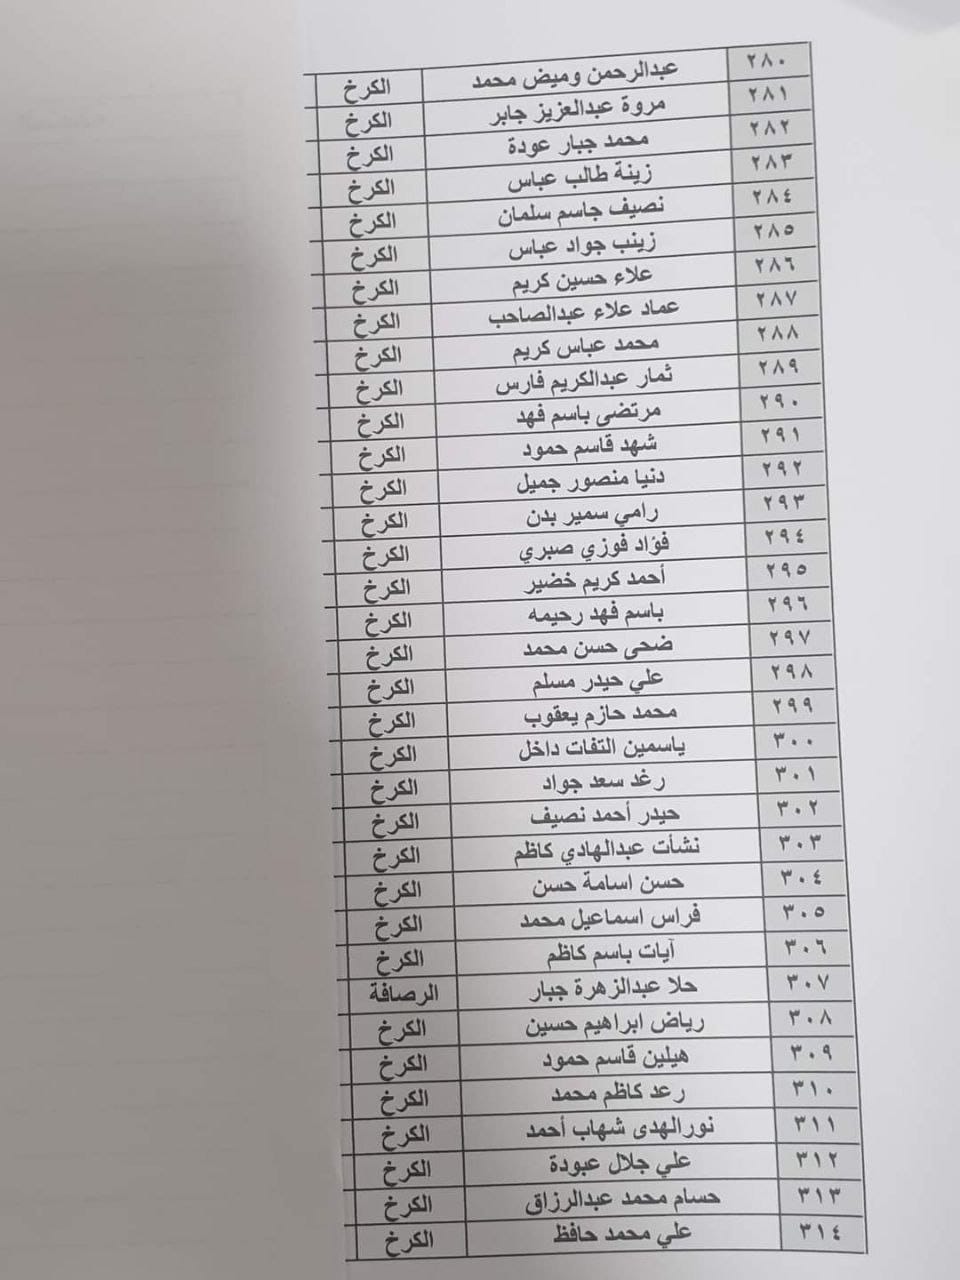 ٢٨٠ عبدالرحمن وميض محمد الكرخ
٢٨١ مروة عبدالعزيز جابر الكرخ
٢٨٢ محمد جبار عودة الكرخ
٢٨٣ زينة طالب عباس الكرخ
٢٨٤ نصيف جاسم سلمان الكرخ
٢٨٥ زينب جواد عباس الكرخ
٢٨٦ علاء حسين كريم الكرخ
٢٨٧ عماد علاء عبدالصاحب الكرخ
٢٨٨ محمد عباس كريم الكرخ
٢٨٩ ثمار عبدالكريم فارس الكرخ
٢٩٠ مرتضى باسم فهد الكرخ
٢٩١ شهد قاسم حمود الكرخ
٢٩٢ دنيا منصور جميل الكرخ
٢٩٣ رامي سمير بدن الكرخ
٢٩٤ فؤاد فوزي صبري الكرخ
٢٩٥ أحمد كريم خضير الكرخ
٢٩٦ باسم فهد رحيمه الكرخ
٢٩٧ ضحى حسن محمد الكرخ
٢٩٨ علي حيدر مسلم الكرخ
٢٩٩ محمد حازم يعقوب الكرخ
٣٠٠ ياسمين التفات داخل الكرخ
٣٠١ رغد سعد جواد الكرخ
٣٠٢ حيدر أحمد نصيف الكرخ
٣٠٣ نشأت عبدالهادي كاظم الكرخ
٣٠٤ حسن اسامة حسن الكرخ
٣٠٥ فراس اسماعيل محمد الكرخ
٣٠٦ آيات باسم كاظم الكرخ
٣٠٧ حلا عبدالزهرة جبار الرصافة
٣٠٨ رياض ابراهيم حسين الكرخ
٣٠٩ هيلين قاسم حمود الكرخ
٣١٠ رعد كاظم محمد الكرخ
٣١١ نورالهدى شهاب أحمد الكرخ
٣١٢ علي جلال عبودة الكرخ
٣١٣ حسام محمد عبدالرزاق الكرخ
٣١٤ علي محمد حافظ الكرخ